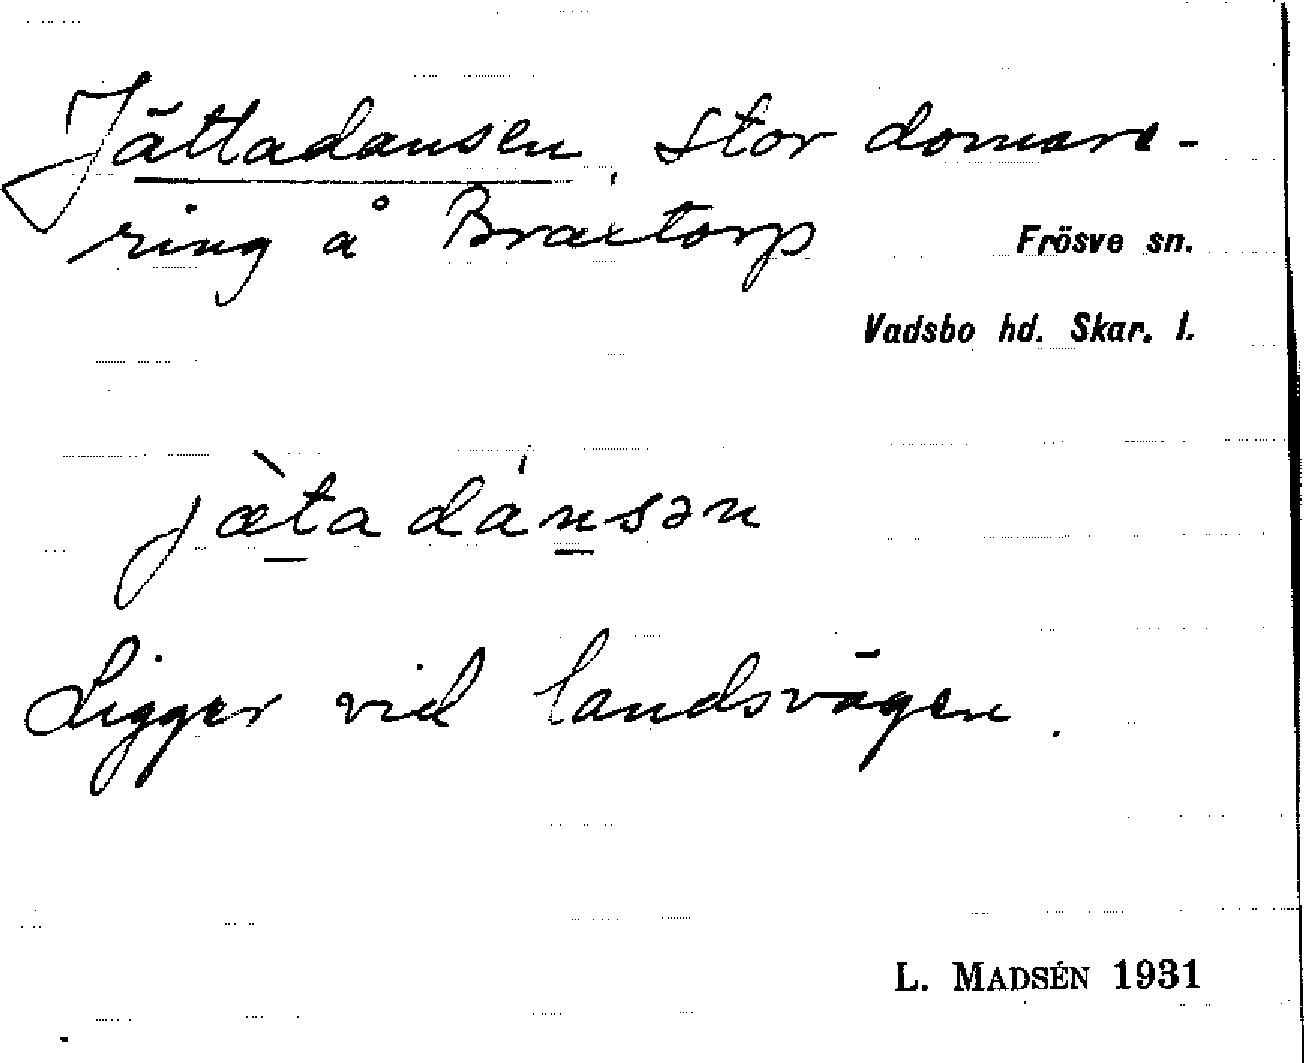 Jättadansen, stor domare-
ring å Braxtorp
Frösve sn.
Vadsbo hd. Skar. l.
jæ̀tadánsən
Ligger vid landsvägen.
L. MADSÉN 1931